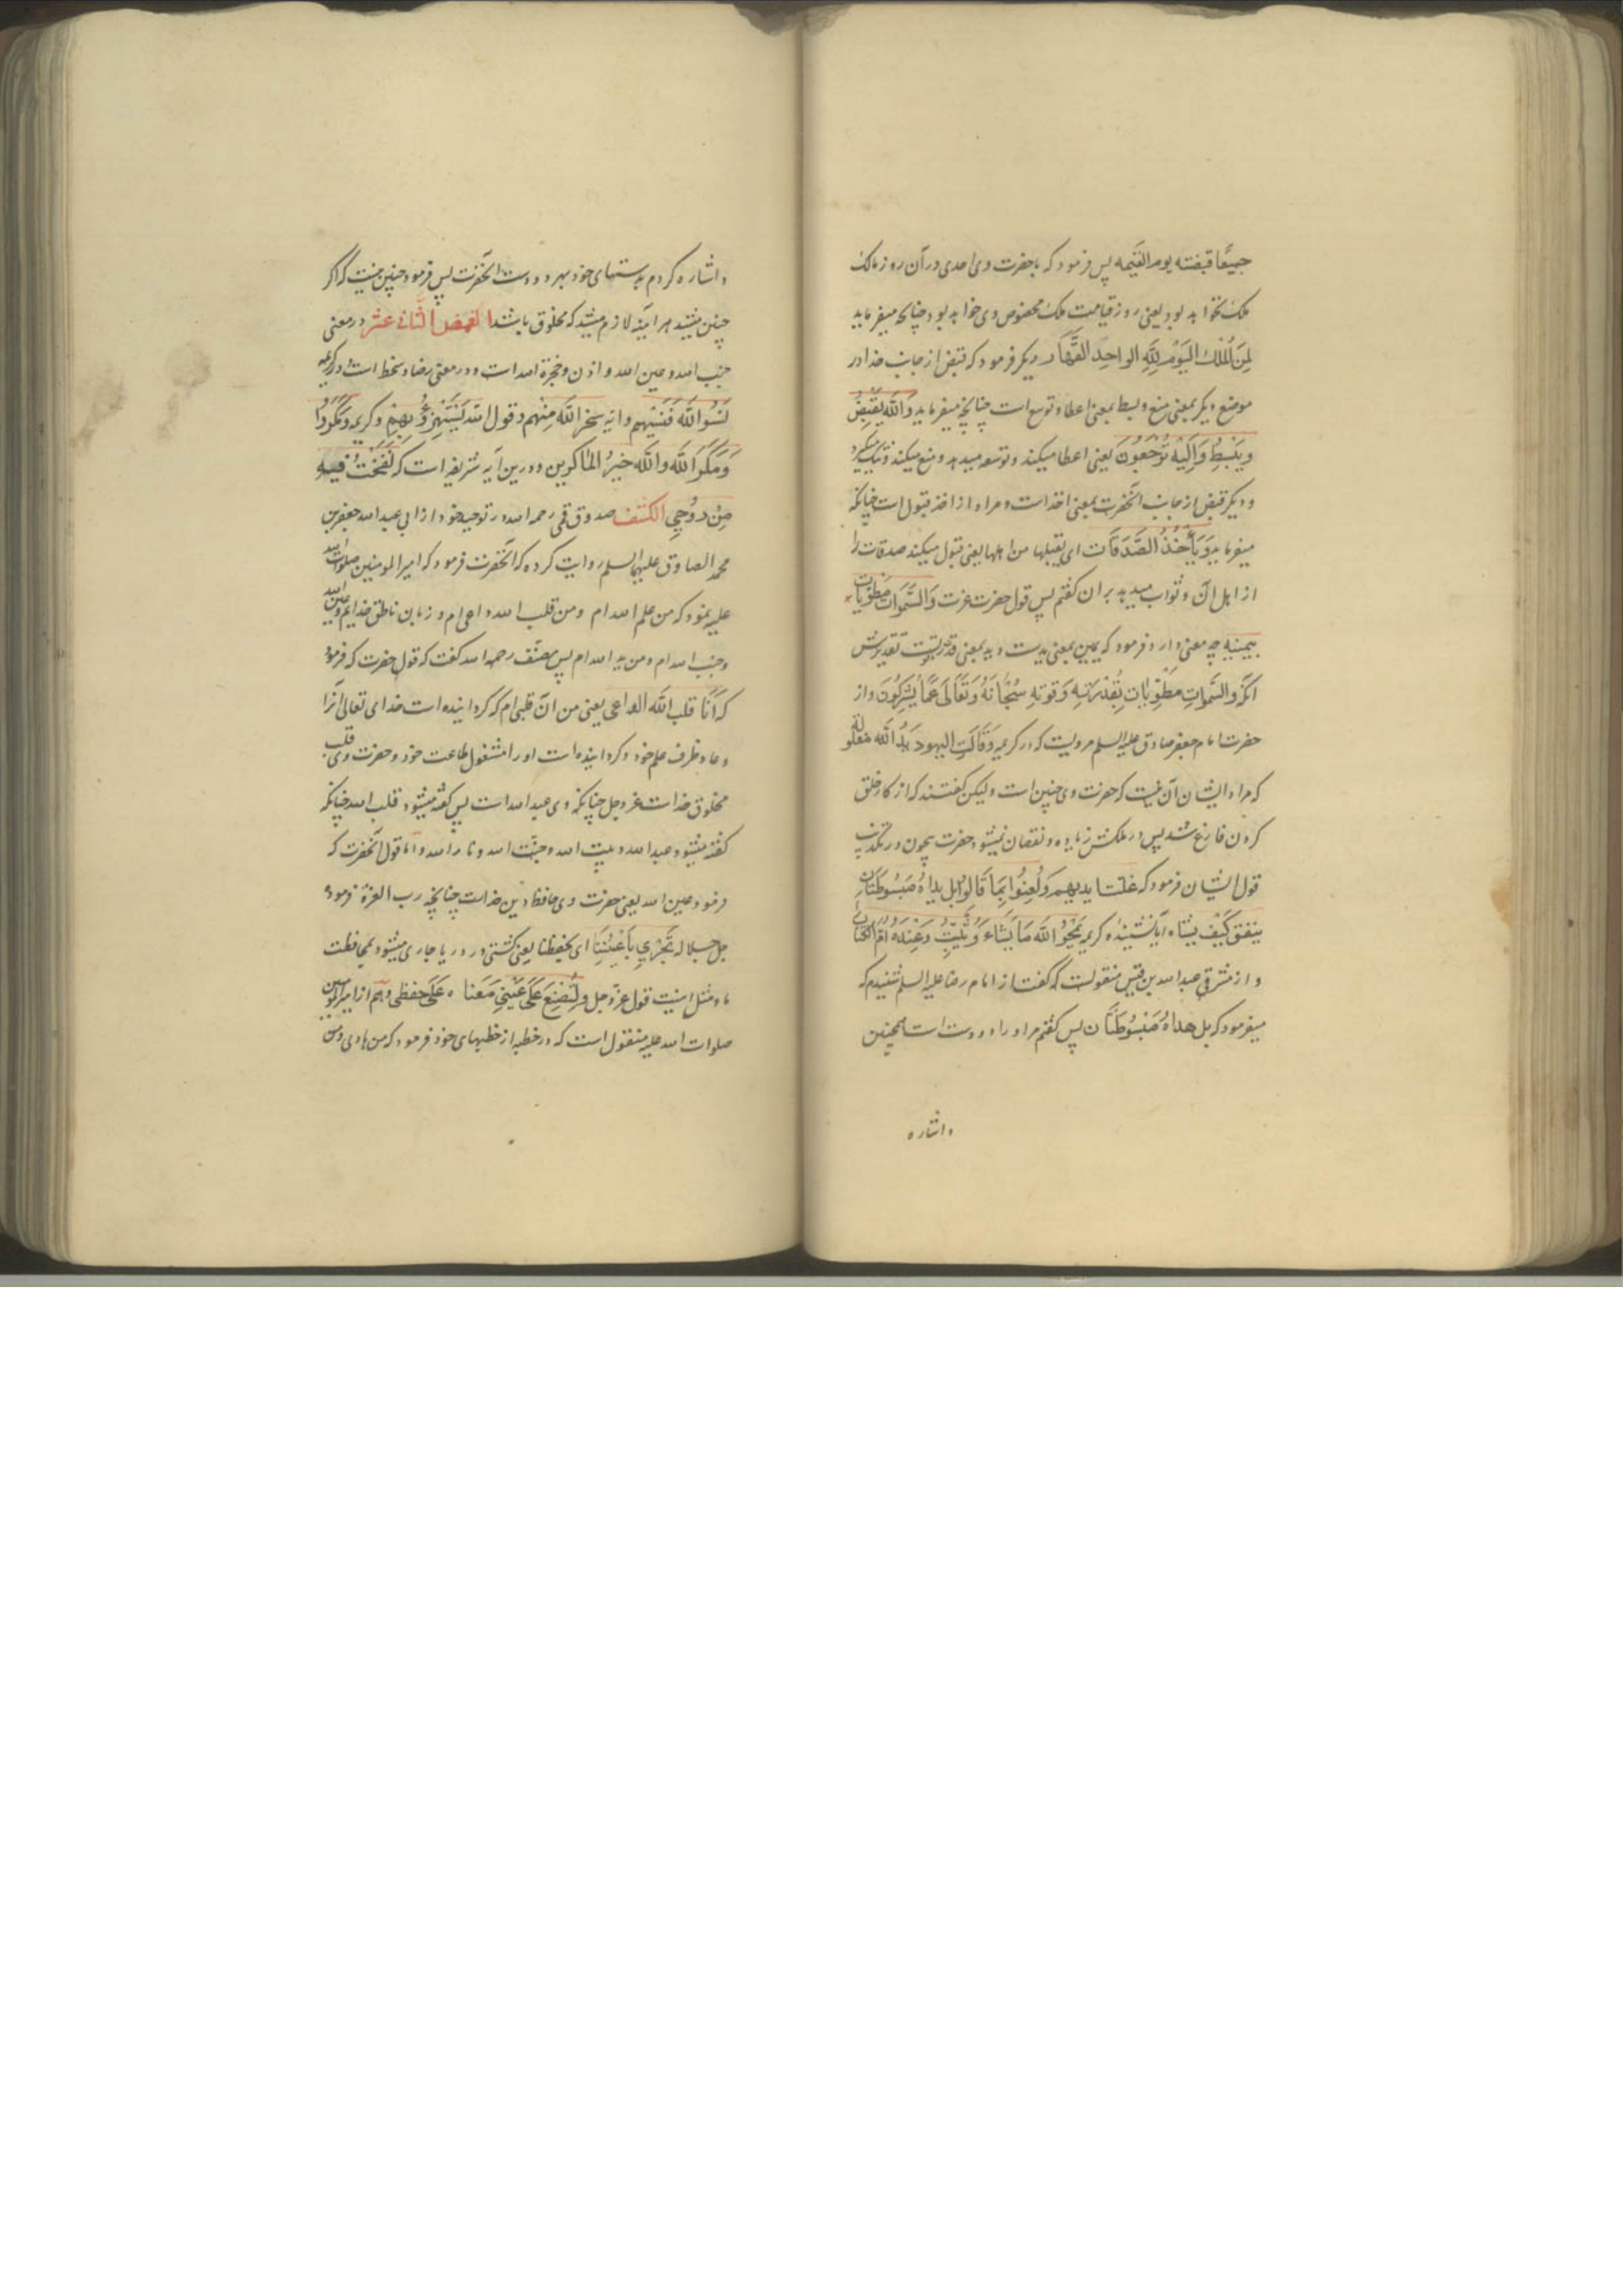 جمیعًا قبضته یوم القیمه پس فرمود که با حضرت وی احدی در آن روز مالک
ملک نخواهد بود یعنی روز قیامت ملک مخصوص وی خواهد بود چنانکه میفرماید
لِمَنِ الْمُلْكُ الیَوْمَ لِلّٰهِ الواحِدِ القَهَّار دیکر فرمود که قبض از جانب خدا در
موضع دیکر بمعنی منع و بسط بمعنی اعطا و توسع است چنانچه میفرماید وَاللّٰهُ یَقْبِضُ
وَیَبْسُطُ وَاِلَیْهِ تُرْجَعُونَ یعنی اعطا میکند و توسعه میدهد و منع میکند و تنک میکیرد
و دیکر قبض از جانب آنحضرت بمعنی اخذ است و مراد از اخذ قبول است چنانکه
میفرماید وَیَأْخُذُ الصَّدَقَات ای یقبلها من اهلها یعنی قبول میکند صدقات را
از اهل آن و ثواب میدهد بران کفتم پس قول حضرت عزت وَالسَّمٰوَات مَطْوِیَّات
بِیَمِینِهِ چه معنی دارد فرمود که یمین بمعنی یدست و ید بمعنی قدرتست تقدیرش
آنکه والسَّمٰواتِ مَطْوِیَّات بِقُدْرَتِهِ وَقوتهِ سُبْحَانَهُ وَتَعَالَی عَمَّا یُشْرِکُونَ و از
حضرت امام جعفر صادق علیه السلم مرویست که در کریمه وَقَالَتِ الیهود یَدُ اللّٰه مغلوله
که مراد ایشان آن نیست که حضرت وی چنین است ولیکن کفتند که از کار خلق
کردن فارغ شد پس در ملکش زیاده و نقصان نمیشود حضرت بیچون در تکذیب
قول ایشان فرمود که غلت ایدیهم وَلُعِنُوا بِمَا قَالُوا بل یداهُ مَبْسُوطَتَان
ینفق کَیْفَ یشاء آیا نشنیده کریمه یَمْحُو اللّٰه مَا یَشَاء وَیُثْبِتُ وَعِنْدَهُ اُمُّ الکِتَابِ
و از مشرقی عبد الله بن قیس منقولست که کفت از امام رضا علیه السلم شنیدم که
میفرمود که بل یداهُ مَبْسُوطَتَان پس کفتم مر او را دو دست است همچنین
و اشاره
و اشاره کردم بدستهای خود بهر دو دست آنحضرت پس فرمود چنین نیست که اکر
چنین میبود هر آینه لازم میشد که مخلوق باشد الغمض الثانی عشر در معنی
جنب الله و عین الله و اذن و حنجرة الله است و در معنی رضا و سخط است در کریمه
نَسُوا اللّٰهَ فَنَسِیَهم و آیه سخر اللّٰه مِنْهم و قول الله یَسْتَهْزِئُ بِهِمْ و کریمه وَمَکَرُوا
وَمَکَرَ اللّٰه وَاللّٰه خیرُ الماکرین و در این آیه شریفه است که نَفَخْتُ فِیهِ
مِنْ رُوحِی الکشف صدوق قمی رحمه الله در توحید خود از ابی عبد الله جعفر بن
محمد الصادق علیهما السلم روایت کرده که آنحضرت فرمود که امیر المومنین صلوات الله
علیه نمود که من علم الله ام و من قلب الله واعی ام و زبان ناطق خدایم و عین الله
و جنب الله ام و من ید الله ام پس مصنف رحمه الله کفت که قول حضرت که فرمود
که اَنَا قلب اللّٰه الواعی یعنی من آن قلبی ام که کردانیده است خدای تعالی آنرا
وعاء و ظرف علم خود و کردانیده است او را مشغول طاعت خود و حضرت وی قلب
مخلوق خداست عز وجل چنانکه وی عبد الله است پس کفته میشود قلب الله چنانکه
کفته میشود عبد الله و بیت الله و جنّت الله و نار الله و اما قول آنحضرت که
فرمود عین الله یعنی حضرت وی حافظ دین خداست چنانچه رب العزة فرموده
جل جلاله تَجْرِی بِاَعْیُنِنَا ای بحفظنا یعنی کشتی در دریا جاری میشود بمحافظت
ما و مثل اینست قول عز وجل وَلِتُصْنَعَ عَلَی عَیْنِی مَعناه عَلَی حفظی و هم از امیر المومنین
صلوات الله علیه منقول است که در خطبه از خطبهای خود فرمود که من هادی و من